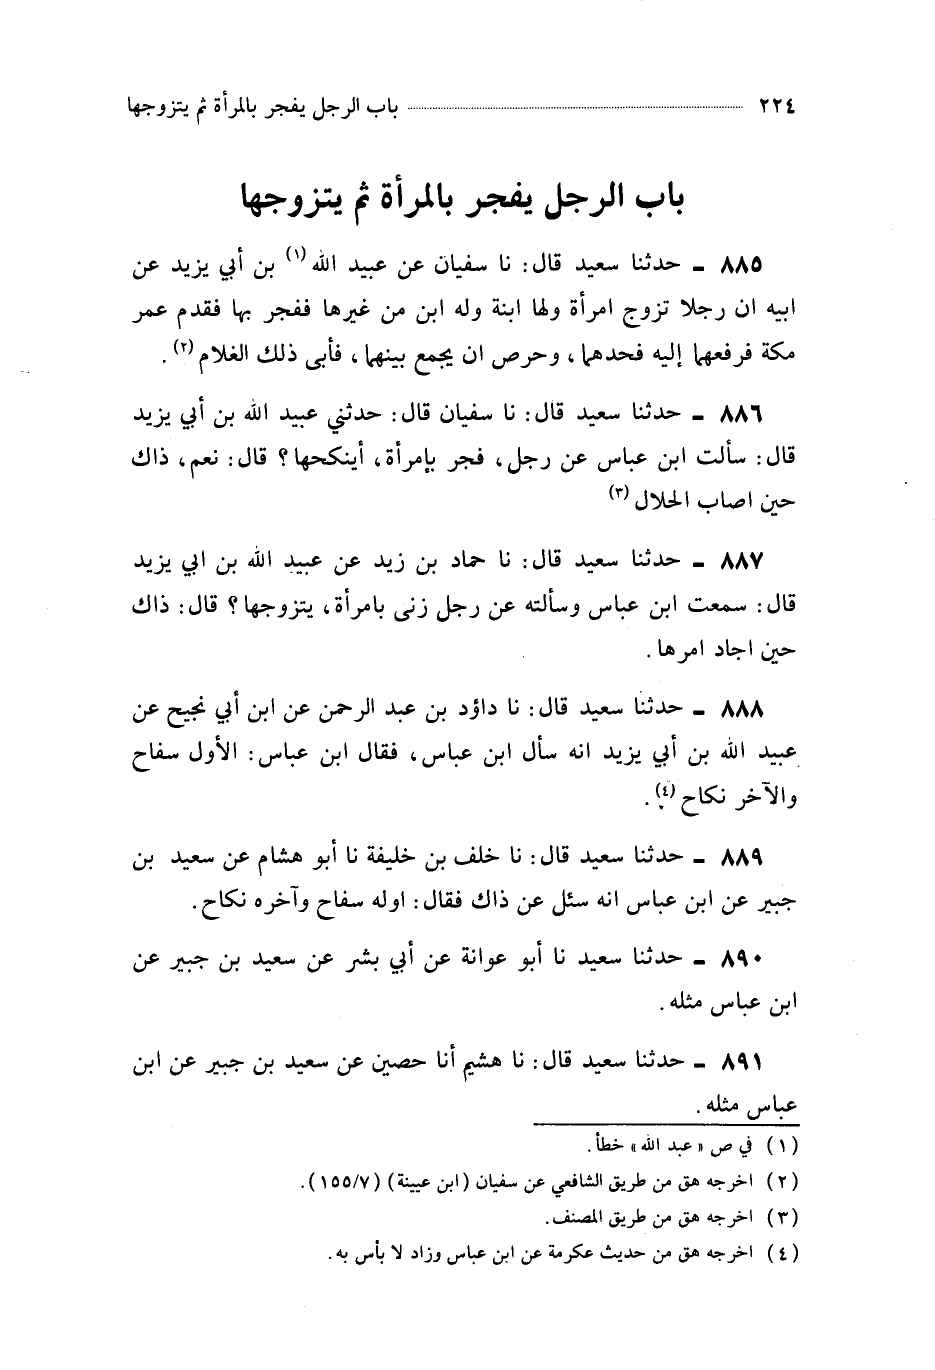 ٢٢٤ باب الرجل يفجر بالمرأة ثم يتزوجها
باب الرجل يفجر بالمرأة ثم يتزوجها
٨٨٥ ـ حدثنا سعيد قال: نا سفيان عن عبيد الله (١) بن أبي يزيد عن
ابيه ان رجلا تزوج امرأة ولها ابنة وله ابن من غيرها ففجر بها فقدم عمر
مكة فرفعهما إليه فحدهما، وحرص ان يجمع بينهما، فأبى ذلك الغلام (٢).
٨٨٦ ـ حدثنا سعيد قال: نا سفيان قال: حدثني عبيد الله بن أبي يزيد
قال: سألت ابن عباس عن رجل، فجر بإمرأة، أينكحها؟ قال: نعم، ذاك
حين اصاب الحلال (٣)
٨٨٧ ـ حدثنا سعيد قال: نا حماد بن زيد عن عبيد الله بن ابي يزيد
قال: سمعت ابن عباس وسألته عن رجل زنى بامرأة، يتزوجها؟ قال: ذاك
حين اجاد امرها.
٨٨٨ ـ حدثنا سعيد قال: نا داؤد بن عبد الرحمن عن ابن أبي نجيح عن
عبيد الله بن أبي يزيد انه سأل ابن عباس، فقال ابن عباس: الأول سفاح
والآخر نكاح (٤).
٨٨٩ ـ حدثنا سعيد قال: نا خلف بن خليفة نا أبو هشام عن سعيد بن
جبير عن ابن عباس انه سئل عن ذاك فقال: اوله سفاح وآخره نكاح.
٨٩٠ ـ حدثنا سعيد نا أبو عوانة عن أبي بشر عن سعيد بن جبير عن
ابن عباس مثله.
٨٩١ ـ حدثنا سعيد قال: نا هشيم أنا حصين عن سعيد بن جبير عن ابن
عباس مثله.
(١) في ص «عبد الله» خطأ.
(٢) اخرجه هق من طريق الشافعي عن سفيان (ابن عيينة) (١٥٥/٧).
(٣) اخرجه هق من طريق المصنف.
(٤) اخرجه هق من حديث عكرمة عن ابن عباس وزاد لا بأس به.